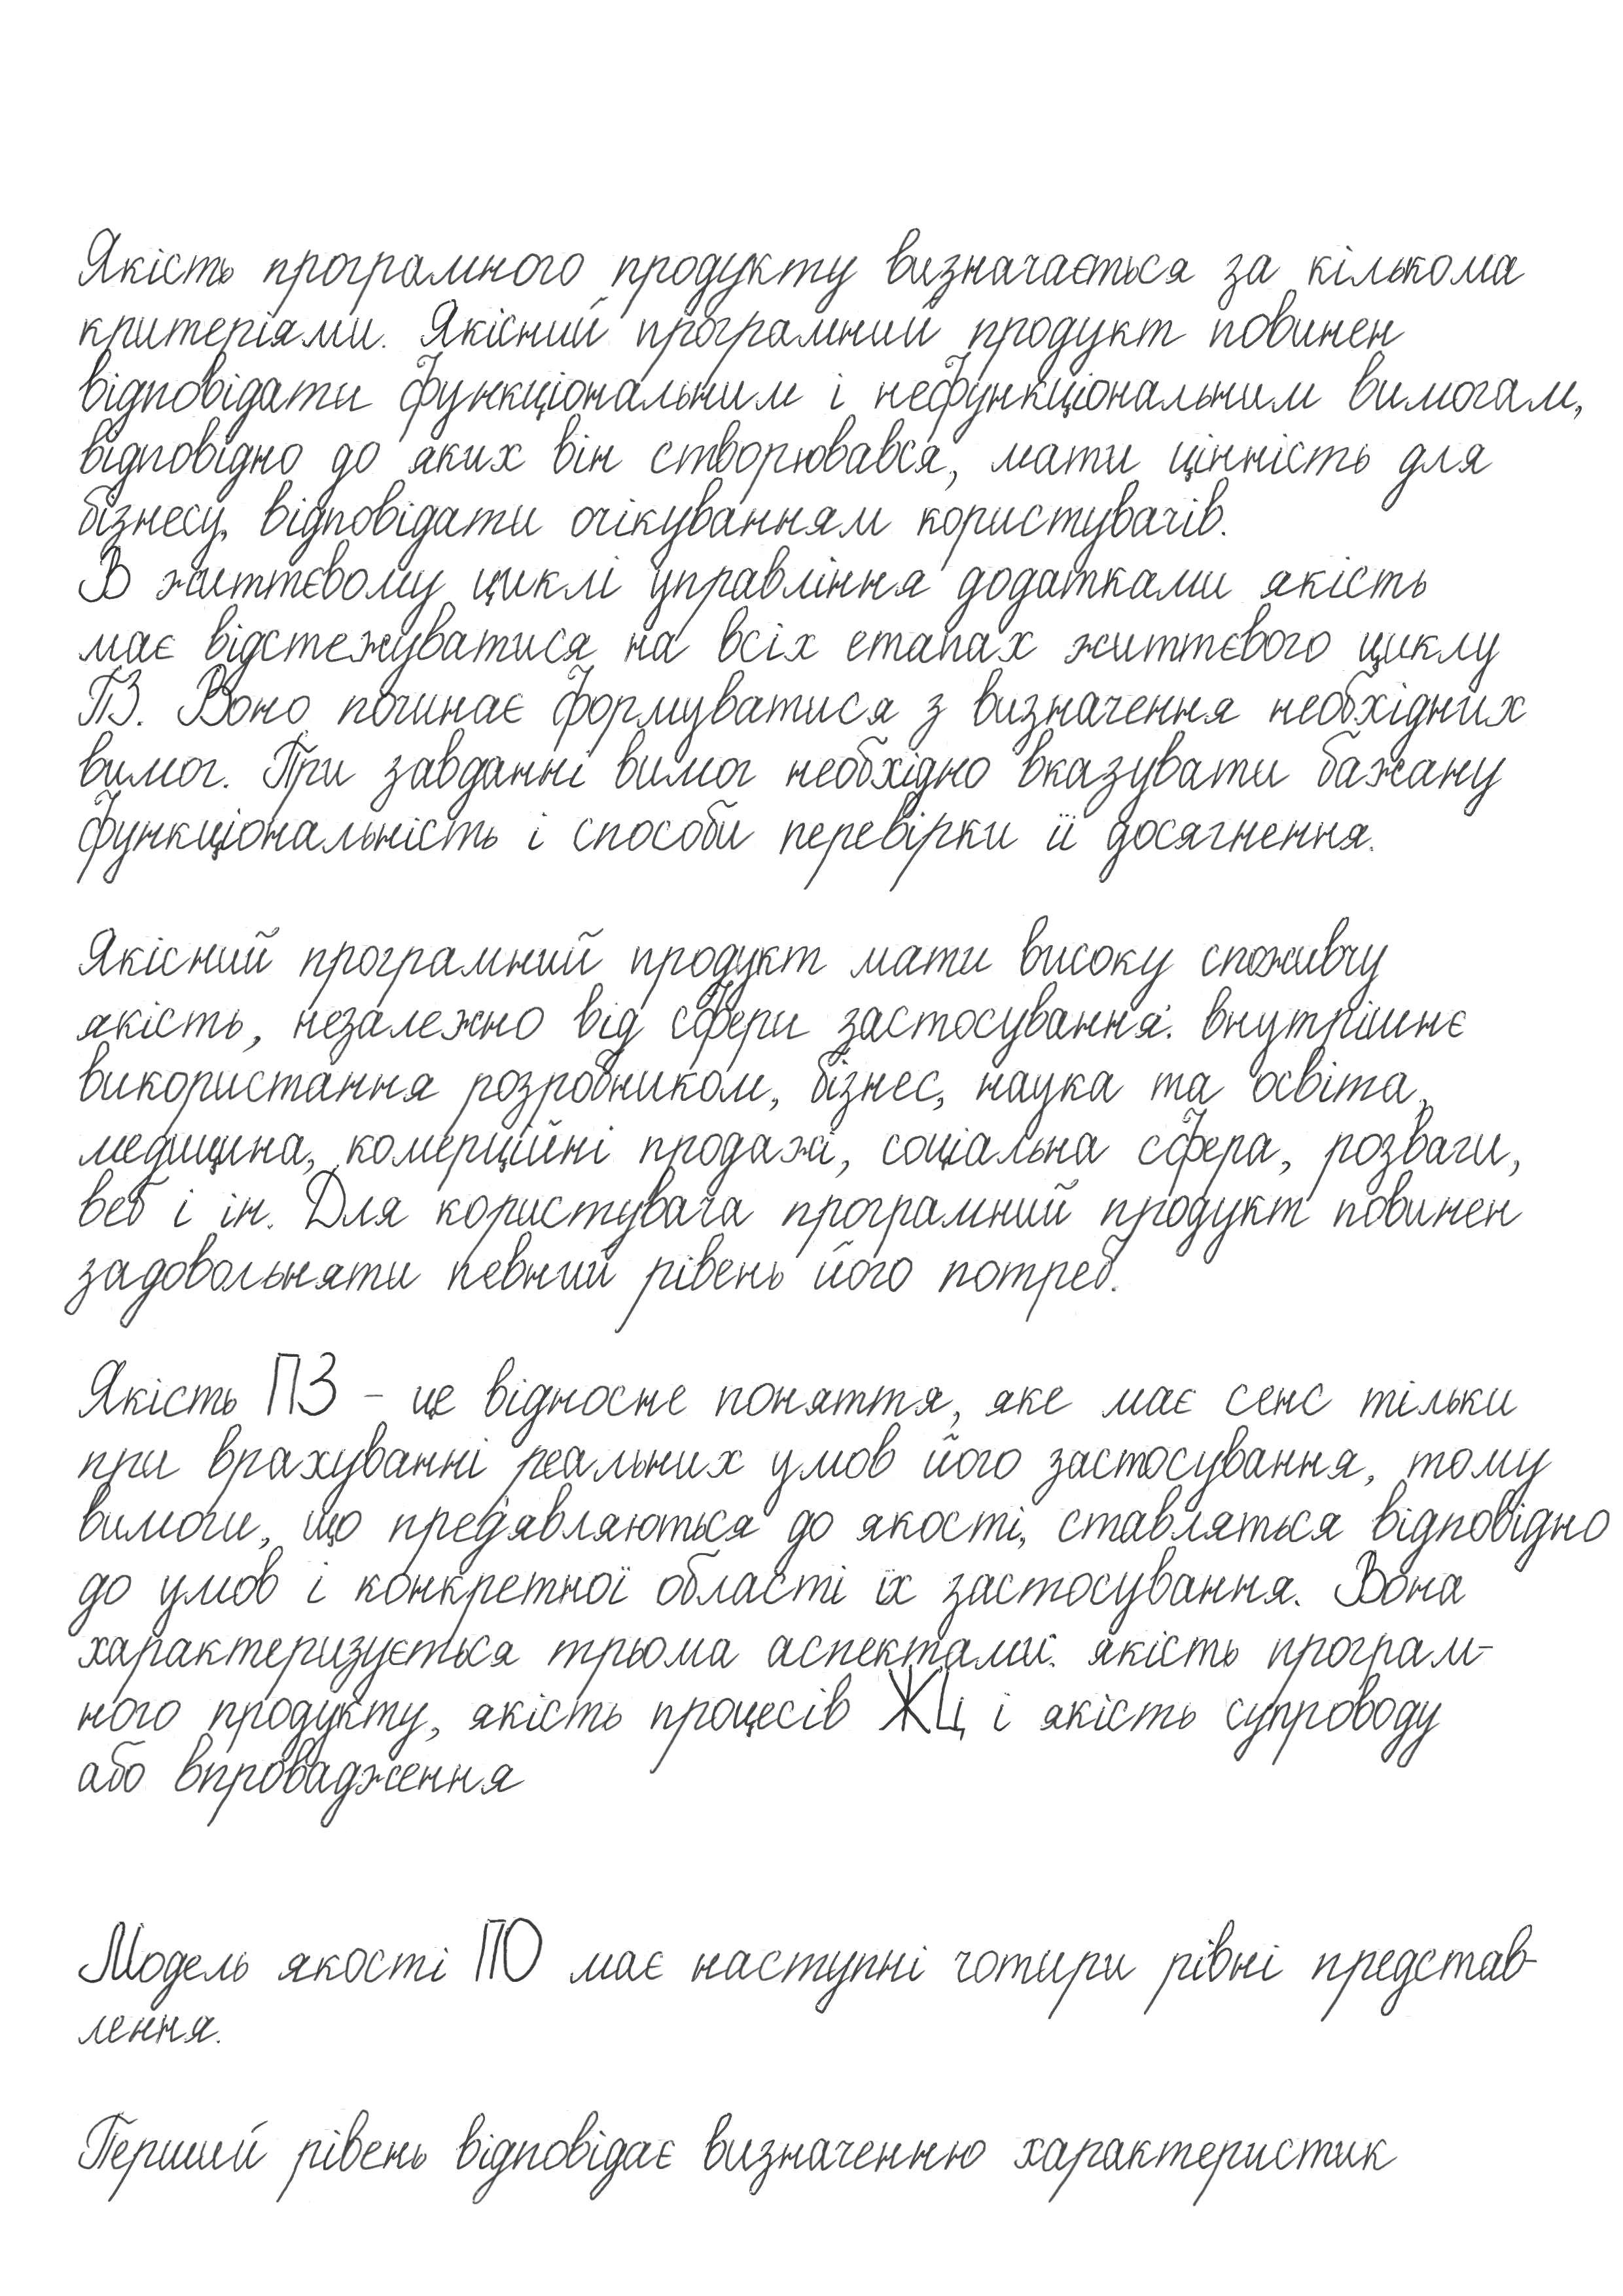 Якість програмного продукту визначається за кількома
критеріями. Якісний програмний продукт повинен
відповідати функціональним і нефункціональним вимогам,
відповідно до яких він створювався, мати цінність для
бізнесу, відповідати очікуванням користувачів.
В життєвому циклі управління додатками якість
має відстежуватися на всіх етапах життєвого циклу
ПЗ. Воно починає формуватися з визначення необхідних
вимог. При завданні вимог необхідно вказувати бажану
функціональність і способи перевірки її досягнення.
Якісний програмний продукт мати високу споживчу
якість, незалежно від сфери застосування: внутрішнє
використання розробником, бізнес, наука та освіта,
медицина, комерційні продажі, соціальна сфера, розваги,
веб і ін. Для користувача програмний продукт повинен
задовольняти певний рівень його потреб.
Якість ПЗ - це відносне поняття, яке має сенс тільки
при врахуванні реальних умов його застосування, тому
вимоги, що пред'являються до якості, ставляться відповідно
до умов і конкретної області їх застосування. Вона
характеризується трьома аспектами: якість програм-
ного продукту, якість процесів ЖЦ і якість супроводу
або впровадження
Модель якості ПО має наступні чотири рівні представ-
лення.
Перший рівень відповідає визначенню характеристик